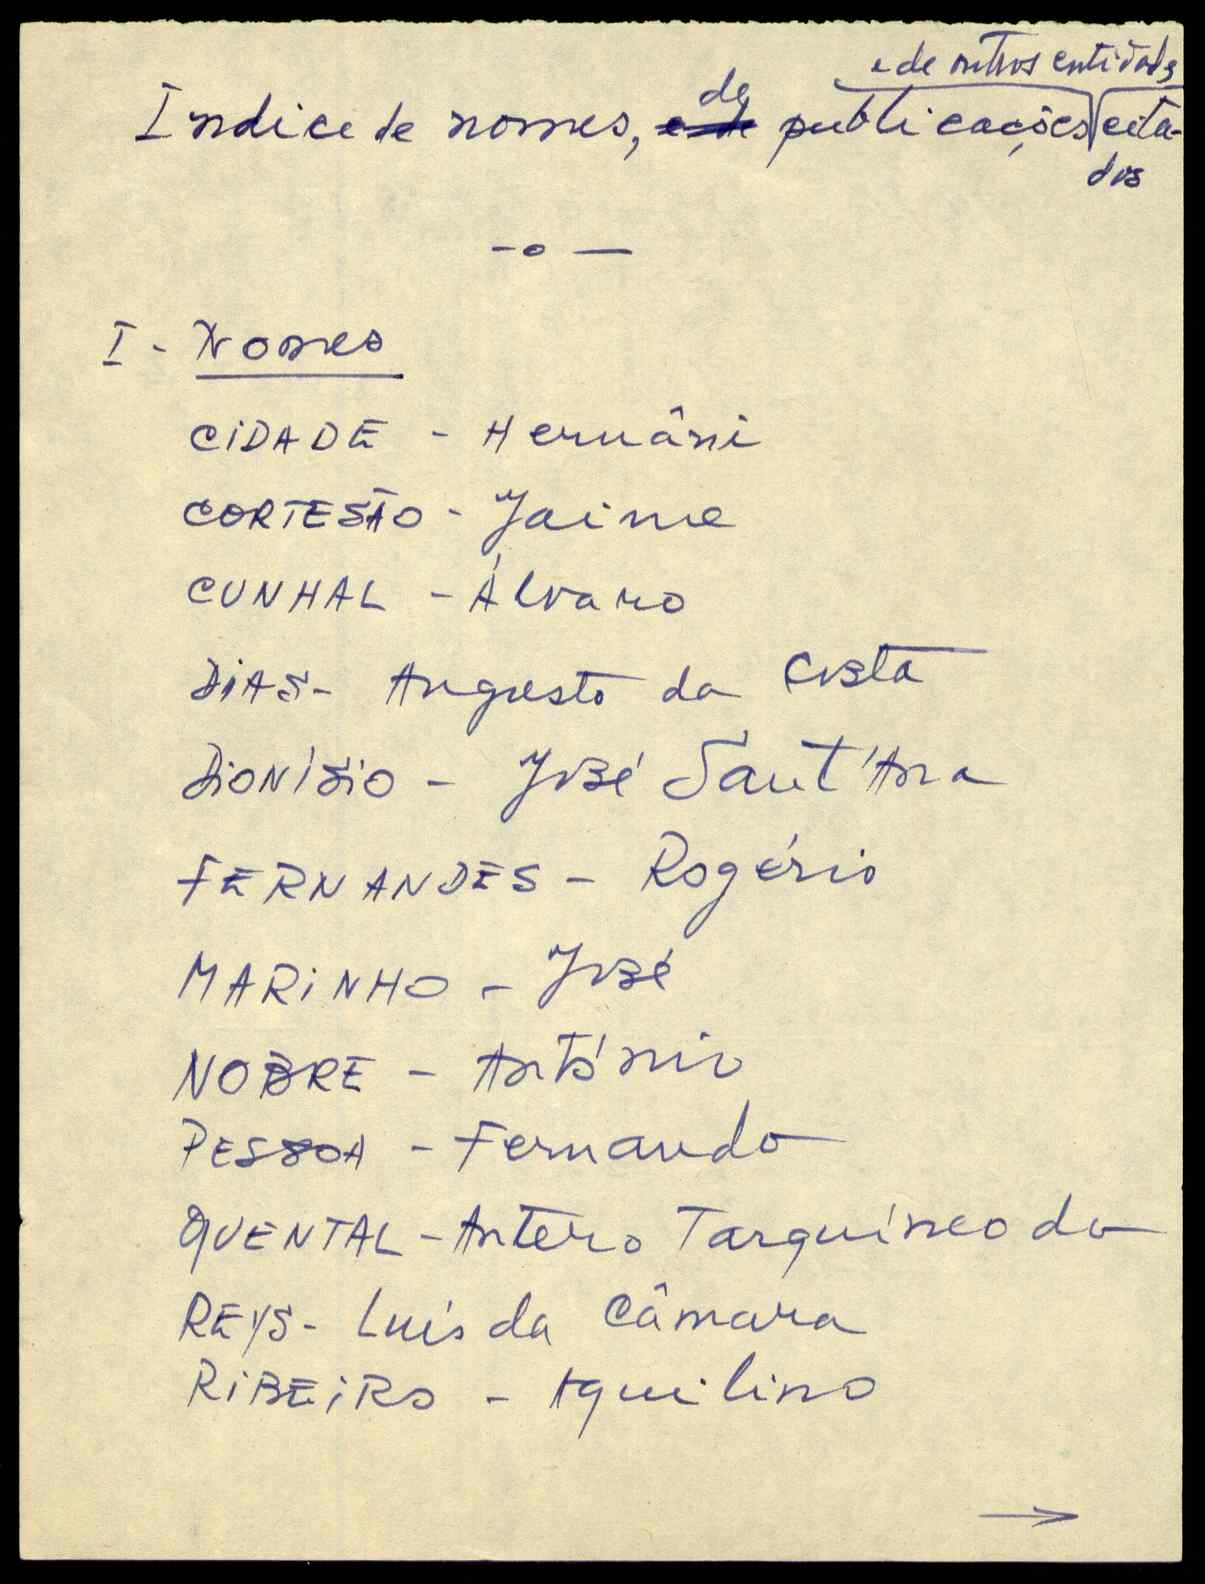 e de outros entidads
de
Indice de nomes, e de publicações cita-
dos
-o-
I - Nomes
CIDADE - Hernâni
CORTESÃO - Jaime
CUNHAL - Álvaro
DIAS - Augusto da Costa
DIONÍSIO - José Sant'Ana
FERNANDES - Rogério
MARINHO - José
NOBRE - António
PESSOA - Fernando
QUENTAL - Antero Tarquíneo do
REYS - Luís da Câmara
RIBEIRO - Aquilino
→